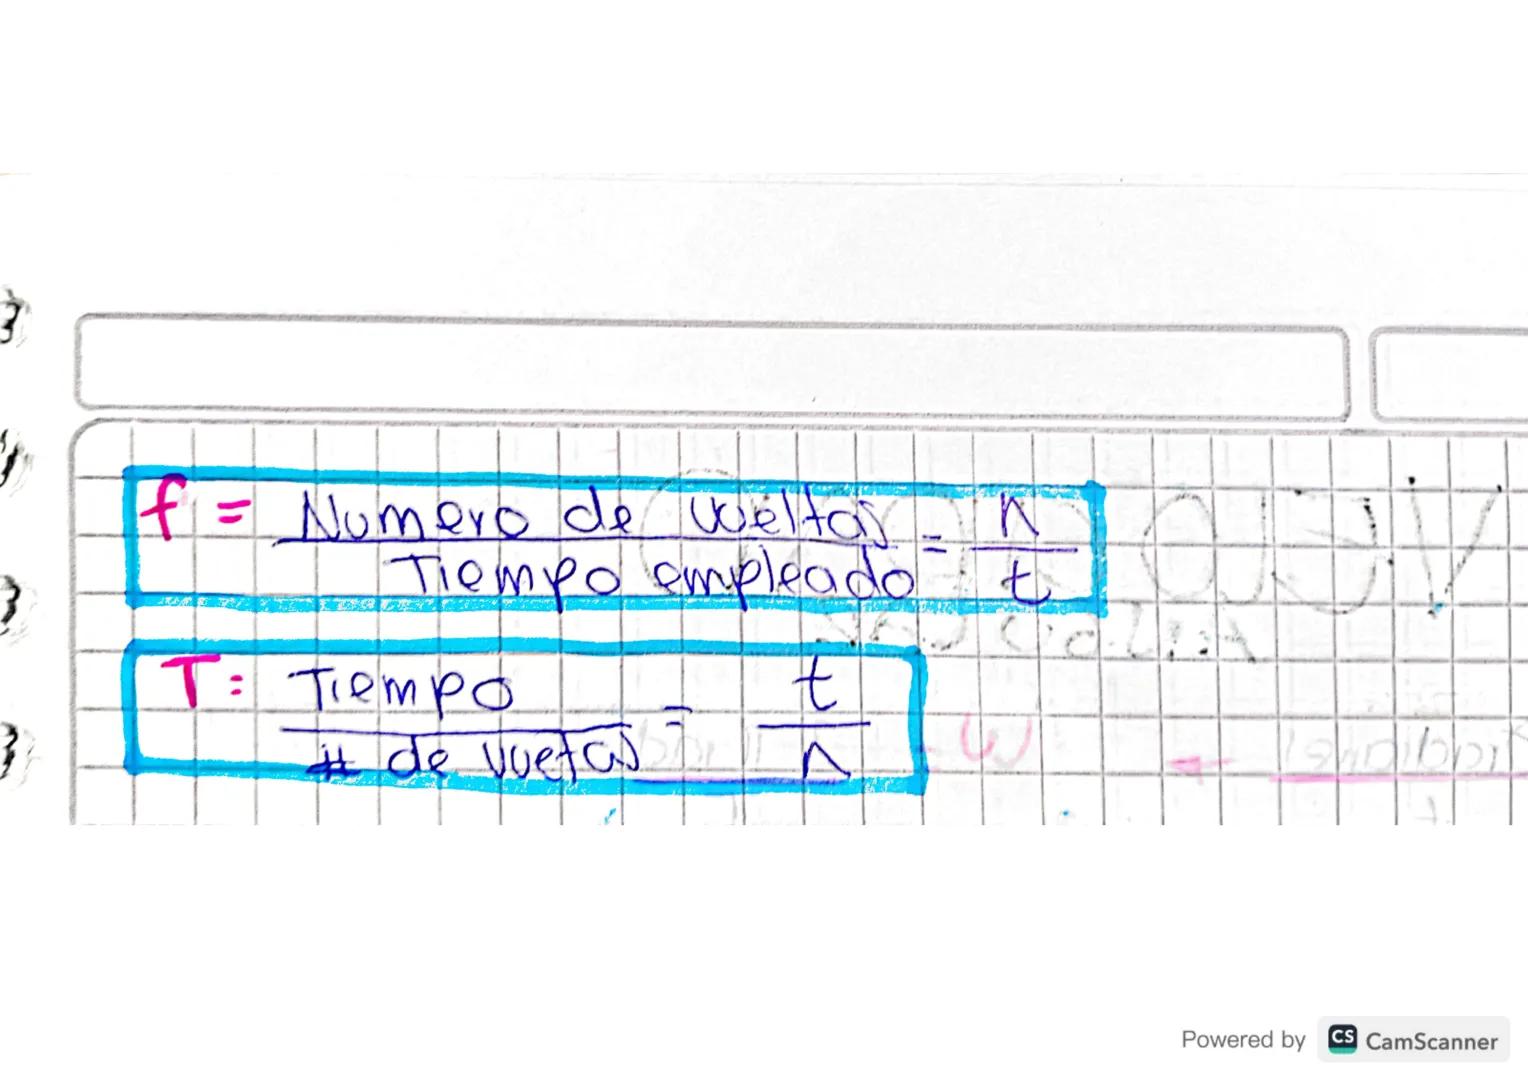 f = Numero de vueltas = n
Tiempo empleado t
T= Tiempo = t
# de vuetas n
Powered by CS CamScanner